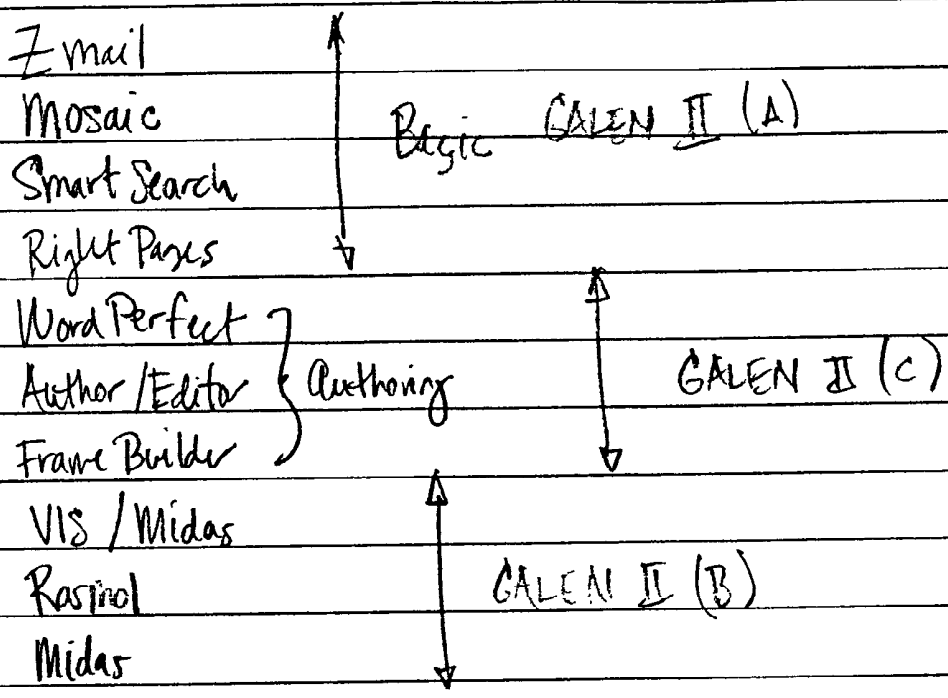 Zmail
Mosaic
Basic GALEN II (A)
Smart Search
Right Pages
Word Perfect
Author/Editor } Authoring GALEN II (C)
Frame Builder
VIS/Midas
Rasmol GALEN II (B)
Midas